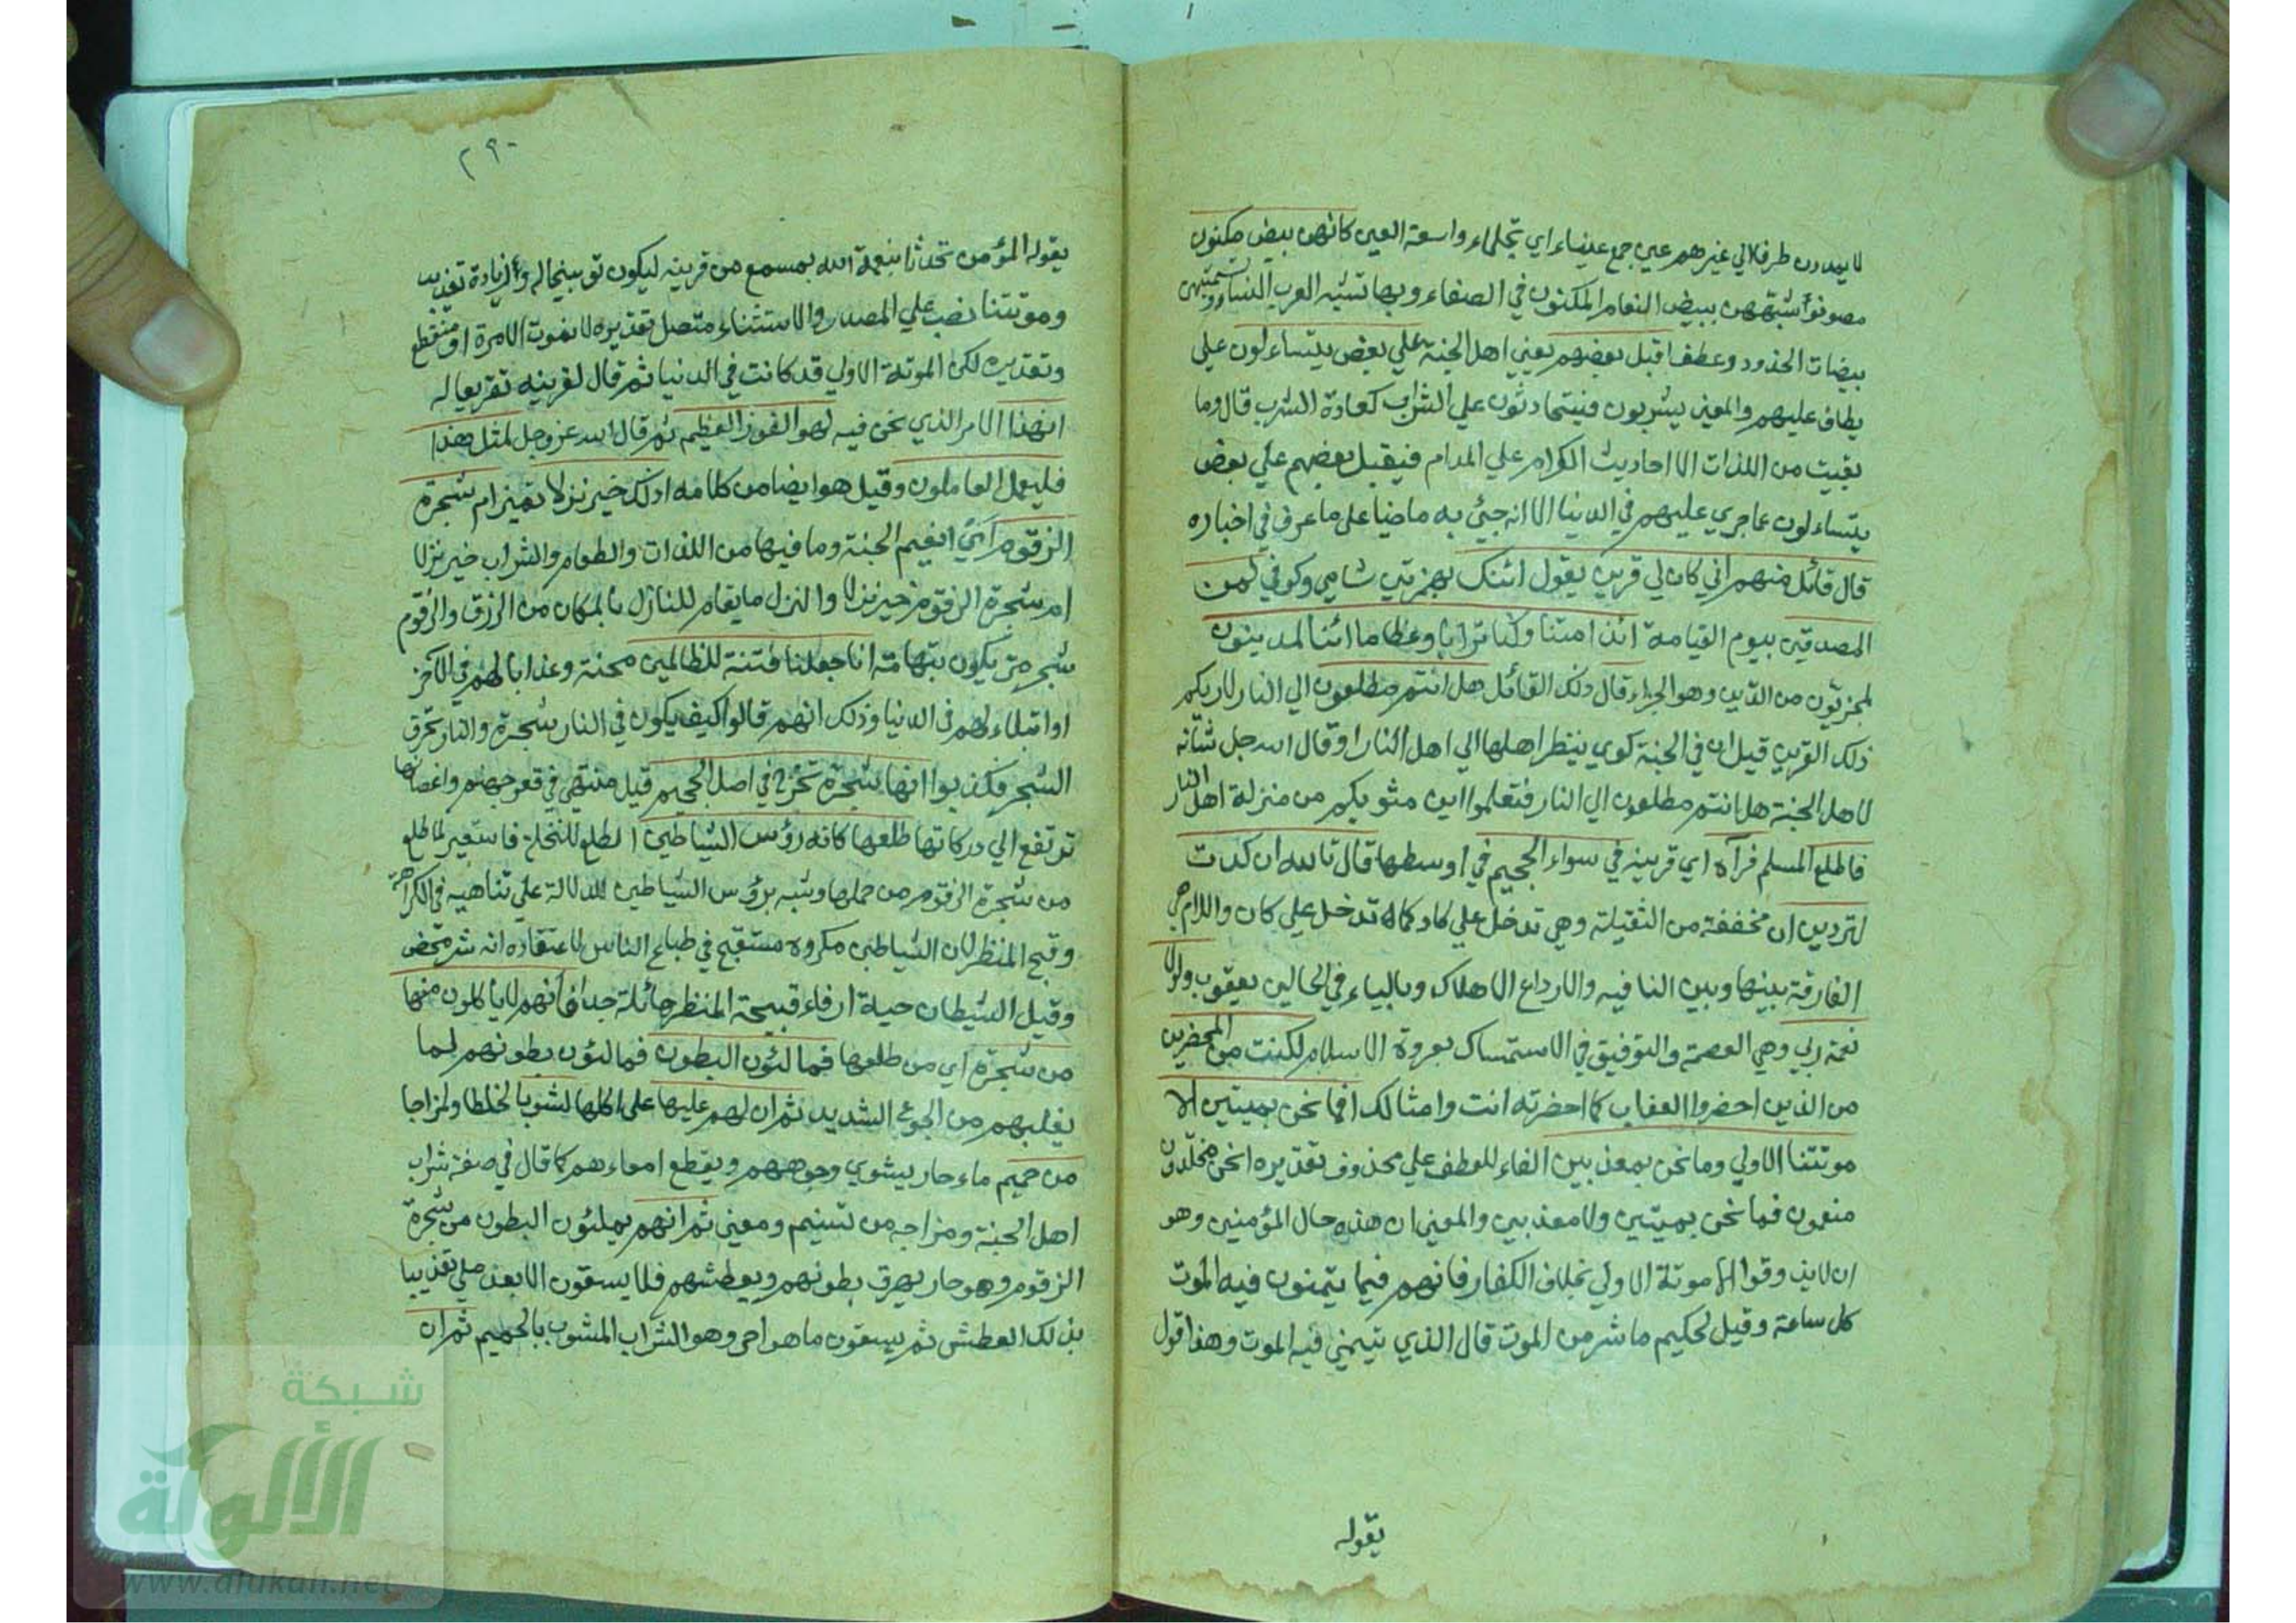 لا يمددن طرفا الي غيرهم عين جمع عيناء اي نجلاء واسعة العين كانهن بيض مكنون
مصونو شبههن ببيض النعام المكنون في الصفاء وبها تشبه العرب النساء وتسميهن
بيضات الخدود وعطف اقبل بعضهم يعني اهل الجنة علي بعض يتساءلون علي
يطاف عليهم والمعني يشربون فيتحادثون علي الشراب كعادة الشرب قال وما
بقيت من اللذات الا احاديث الكرام علي المدام فيقبل بعضهم علي بعض
يتساءلون عما جري عليهم في الدنيا الا انه جيئ به ماضيا علي ما عرف في اخباره
قال قائل منهم اني كان لي قرين يقول ائنك بهمزتين شامي وكوفي لمن
المصدقين بيوم القيامة ائذا متنا وكنا ترابا وعظاما ائنا لمدينون
لمجزيون من الدين وهو الجزاء قال ذلك القائل هل انتم مطلعون الي النار لاريكم
ذلك القرين قيل ان في الجنة كوي ينظر اهلها الي اهل النار او قال الله جل شانه
لاهل الجنة هل انتم مطلعون الي النار فتعلموا اين مثويكم من منزلة اهل النار
فاطلع المسلم فرآه اي قرينه في سواء الجحيم في اوسطها قال تالله ان كدت
لتردين ان مخففة من الثقيلة وهي تدخل علي كاد كما تدخل علي كان واللام هي
الفارقة بينها وبين النافيه والارداء الاهلاك وبالياء في الحالين يعقوب ولولا
نعمة ربي وهي العصمة والتوفيق في الاستمساك بعروة الاسلام لكنت من المحضرين
من الذين احضروا العذاب كما احضرته انت وامثالك افما نحن بميتين الا
موتتنا الاولي وما نحن بمعذبين الفاء للعطف علي محذوف تقديره انحن مخلدون
منعمون فما نحن بميتين ولا معذبين والمعني ان هذه حال المؤمنين وهو
ان لا يذوقوا الا موتة الاولي بخلاف الكفار فانهم فيما يتمنون فيه الموت
كل ساعة وقيل لحكيم ما شر من الموت قال الذي يتمني فيه الموت وهذا قول
يقوله
٢٩٠
يقوله المؤمن تحدثا بنعمة الله بمسمع من قرينه ليكون توبيخا له وزيادة تعذيب
وموتتنا نصب علي المصدر والاستثناء متصل تقديره لا نموت الا مرة او منقطع
وتقديره لكن الموتة الاولي قد كانت في الدنيا ثم قال لقرينه تقريعا له
ان هذا الامر الذي نحن فيه لهو الفوز العظيم ثم قال الله عز وجل لمثل هذا
فليعمل العاملون وقيل هو ايضا من كلامه اذلك خير نزلا تميز ام شجرة
الزقوم اي انعيم الجنة وما فيها من اللذات والطعام والشراب خير نزلا
ام شجرة الزقوم خير نزلا والنزل ما يقام للنازل بالمكان من الرزق والزقوم
شجر مر يكون بتهامة انا جعلناها فتنة للظالمين محنة وعذابا لهم في الآخرة
او ابتلاء لهم في الدنيا وذلك انهم قالوا كيف يكون في النار شجرة والنار تحرق
الشجر فكذبوا انها شجرة تخرج في اصل الجحيم قيل منبتها في قعر جهنم واغصانها
ترتفع الي دركاتها طلعها كانه رؤس الشياطين الطلع للنخلة فاستعير لما طلع
من شجرة الزقوم من حملها وشبه برؤس الشياطين للدلالة علي تناهيه في الكراهة
وقبح المنظر لان الشياطين مكروه مستقبح في طباع الناس لاعتقاده انه شر محض
وقيل الشيطان حية عرفاء قبيحة المنظر هائلة جدا فانهم لاياكلون منها
من شجرة اي من طلعها فمالئون البطون فمالئون بطونهم لما
يغلبهم من الجوع الشديد ثم ان لهم عليها علي اكلها لشوبا لخلطا ولمزاجا
من حميم ماء حار يشوي وجوههم ويقطع امعاءهم كما قال في صفة شراب
اهل الجنة ومزاجه من تسنيم ومعني ثم انهم يملئون البطون من شجرة
الزقوم وهو حار يحرق بطونهم ويعطشهم فلا يسقون الا بعد ملي تعذيبا
بذلك العطش ثم يسقون ما هو احر وهو الشراب المشوب بالحميم ثم ان
شبكة
الألوكة
www.alukah.net